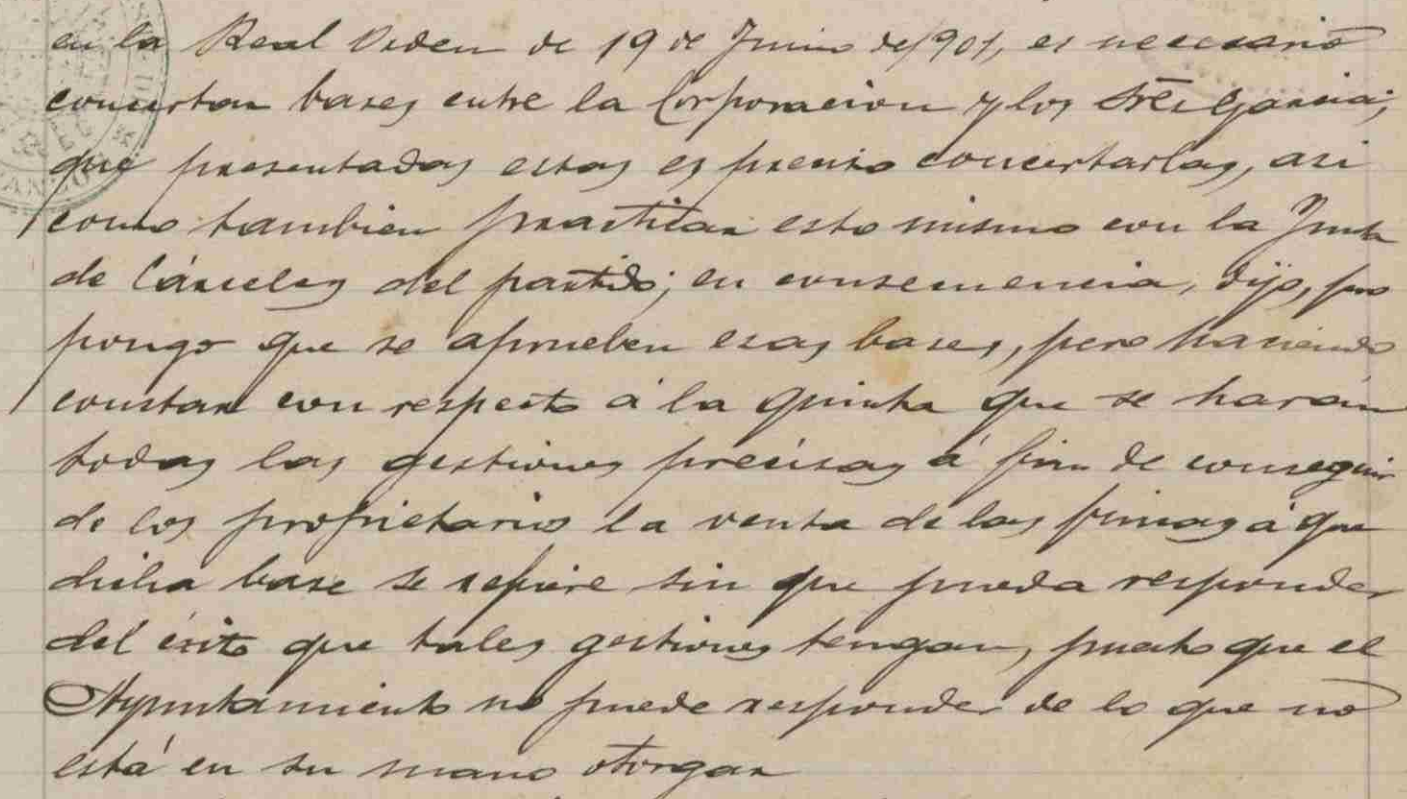 en la Real Orden de 19 de Junio de 1901, es necesario
concertar bases entre la Corporacion y los Sres Garcia;
que presentadas estas es preciso concertarlas, asi
como tambien practicar esto mismo con la Junta
de Cárceles del partido; en consecuencia, dijo, pro
pongo que se aprueben esas bases, pero haciendo
constar con respecto á la quinta que se harán
todas las gestiones precisas á fin de conseguir
de los propietarios la venta de las fincas á que
dicha base se refiere sin que pueda responder
del éxito que tales gestiones tengan, puesto que el
Ayuntamiento no puede responder de lo que no
está en su mano otorgar